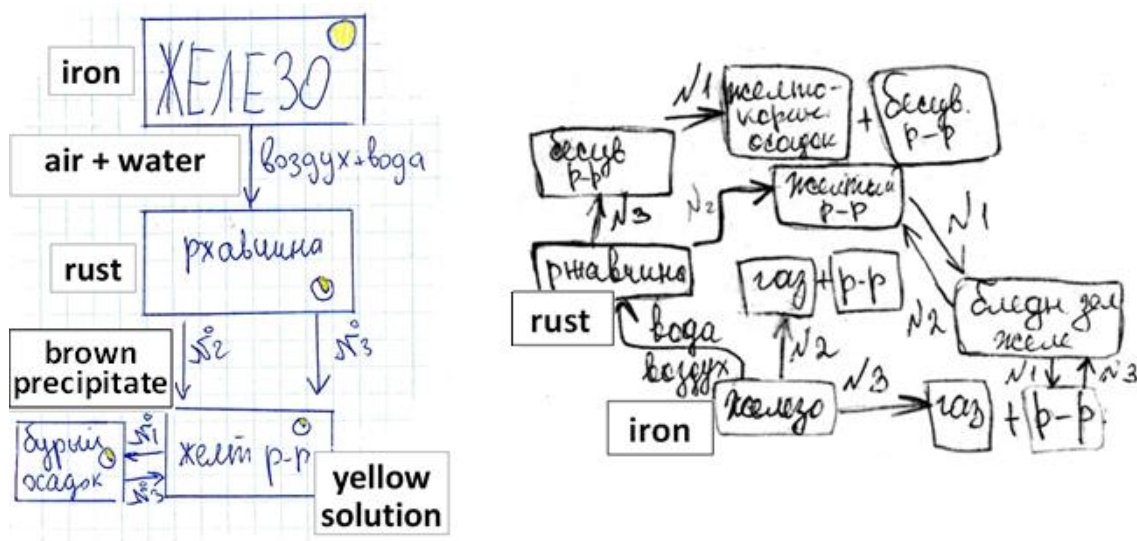 ЖЕЛЕЗО
iron
air + water
воздух+вода
рхавчина
rust
№2
№3
brown
precipitate
бурый
осадок
№1
№3
желт р-р
yellow
solution
№1
желто-
корич.
осадок
+
бесцв.
р-р
бесцв
р-р
№3
№2
желтый
р-р
№1
ржавчина
rust
газ
+
р-р
№2
бледн зел
желе
вода
воздух
№2
№1
№3
железо
iron
№3
газ
+
р-р